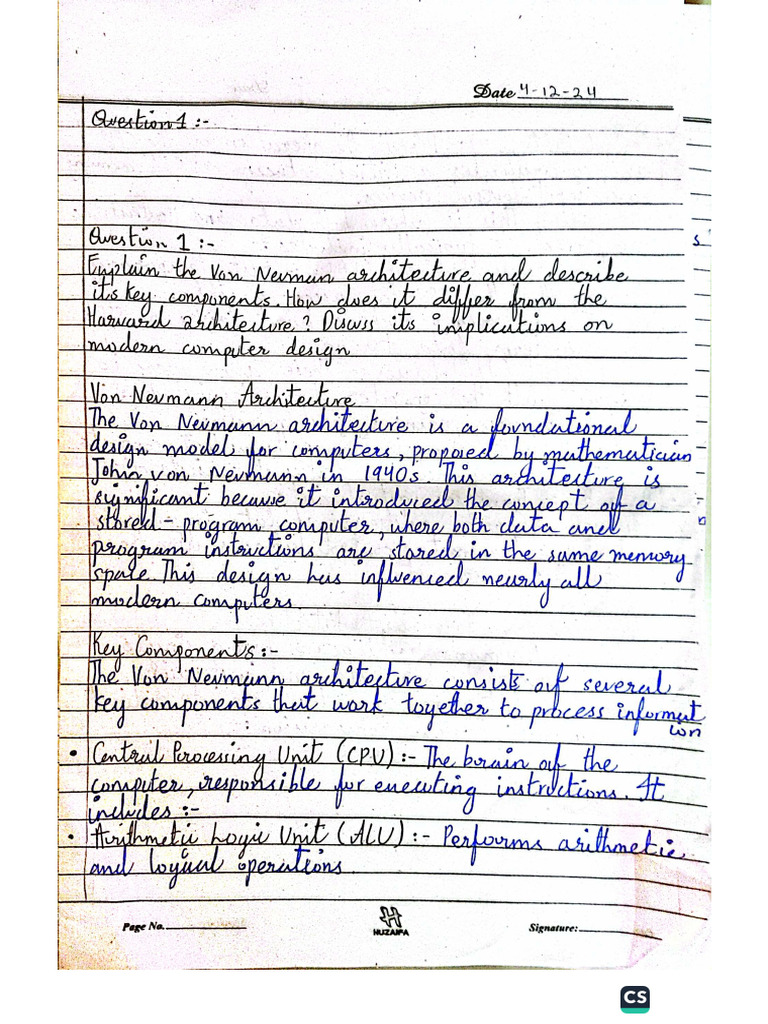 Date 4-12-24
Question 1 :-
Question 1 :-
Explain the Von Neuman architecture and describe
it's key components. How does it differ from the
Harward architecture? Discuss its implications on
modern computer design
Von Neumann Architecture
The Von Neumann architecture is a foundational
design model for computers, proposed by mathematician
John von Neumann in 1940s. This architecture is
significant because it introduced the concept of a
stored-program computer, where both data and
program instructions are stored in the same memory
space. This design has influenced nearly all
modern computers.
Key Components:-
The Von Neumann architecture consists of several
key components that work together to process informat
ion
• Central Processing Unit (CPU) :- The brain of the
computer, responsible for executing instructions. It
includes :-
• Arithmetic Logic Unit (ALU) :- Performs arithmetic
and logical operations.
Page No.
HUZAIFA
Signature:
CS